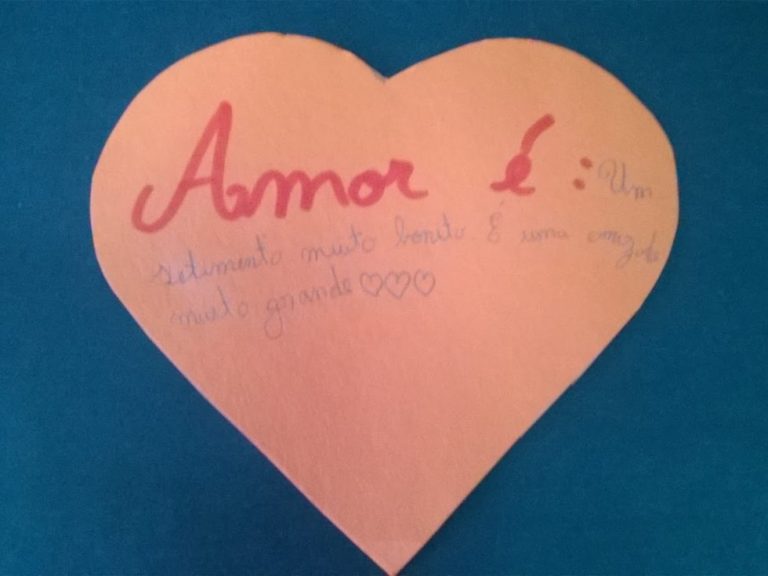 Amor é: Um
setimento muito bonito É uma
muito grande